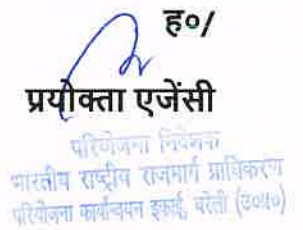 ह०/
प्रयोक्ता एजेंसी
परियोजना निदेशक
भारतीय राष्ट्रीय राजमार्ग प्राधिकरण
परियोजना कार्यान्वयन इकाई, बरेली (उ०प्र०)